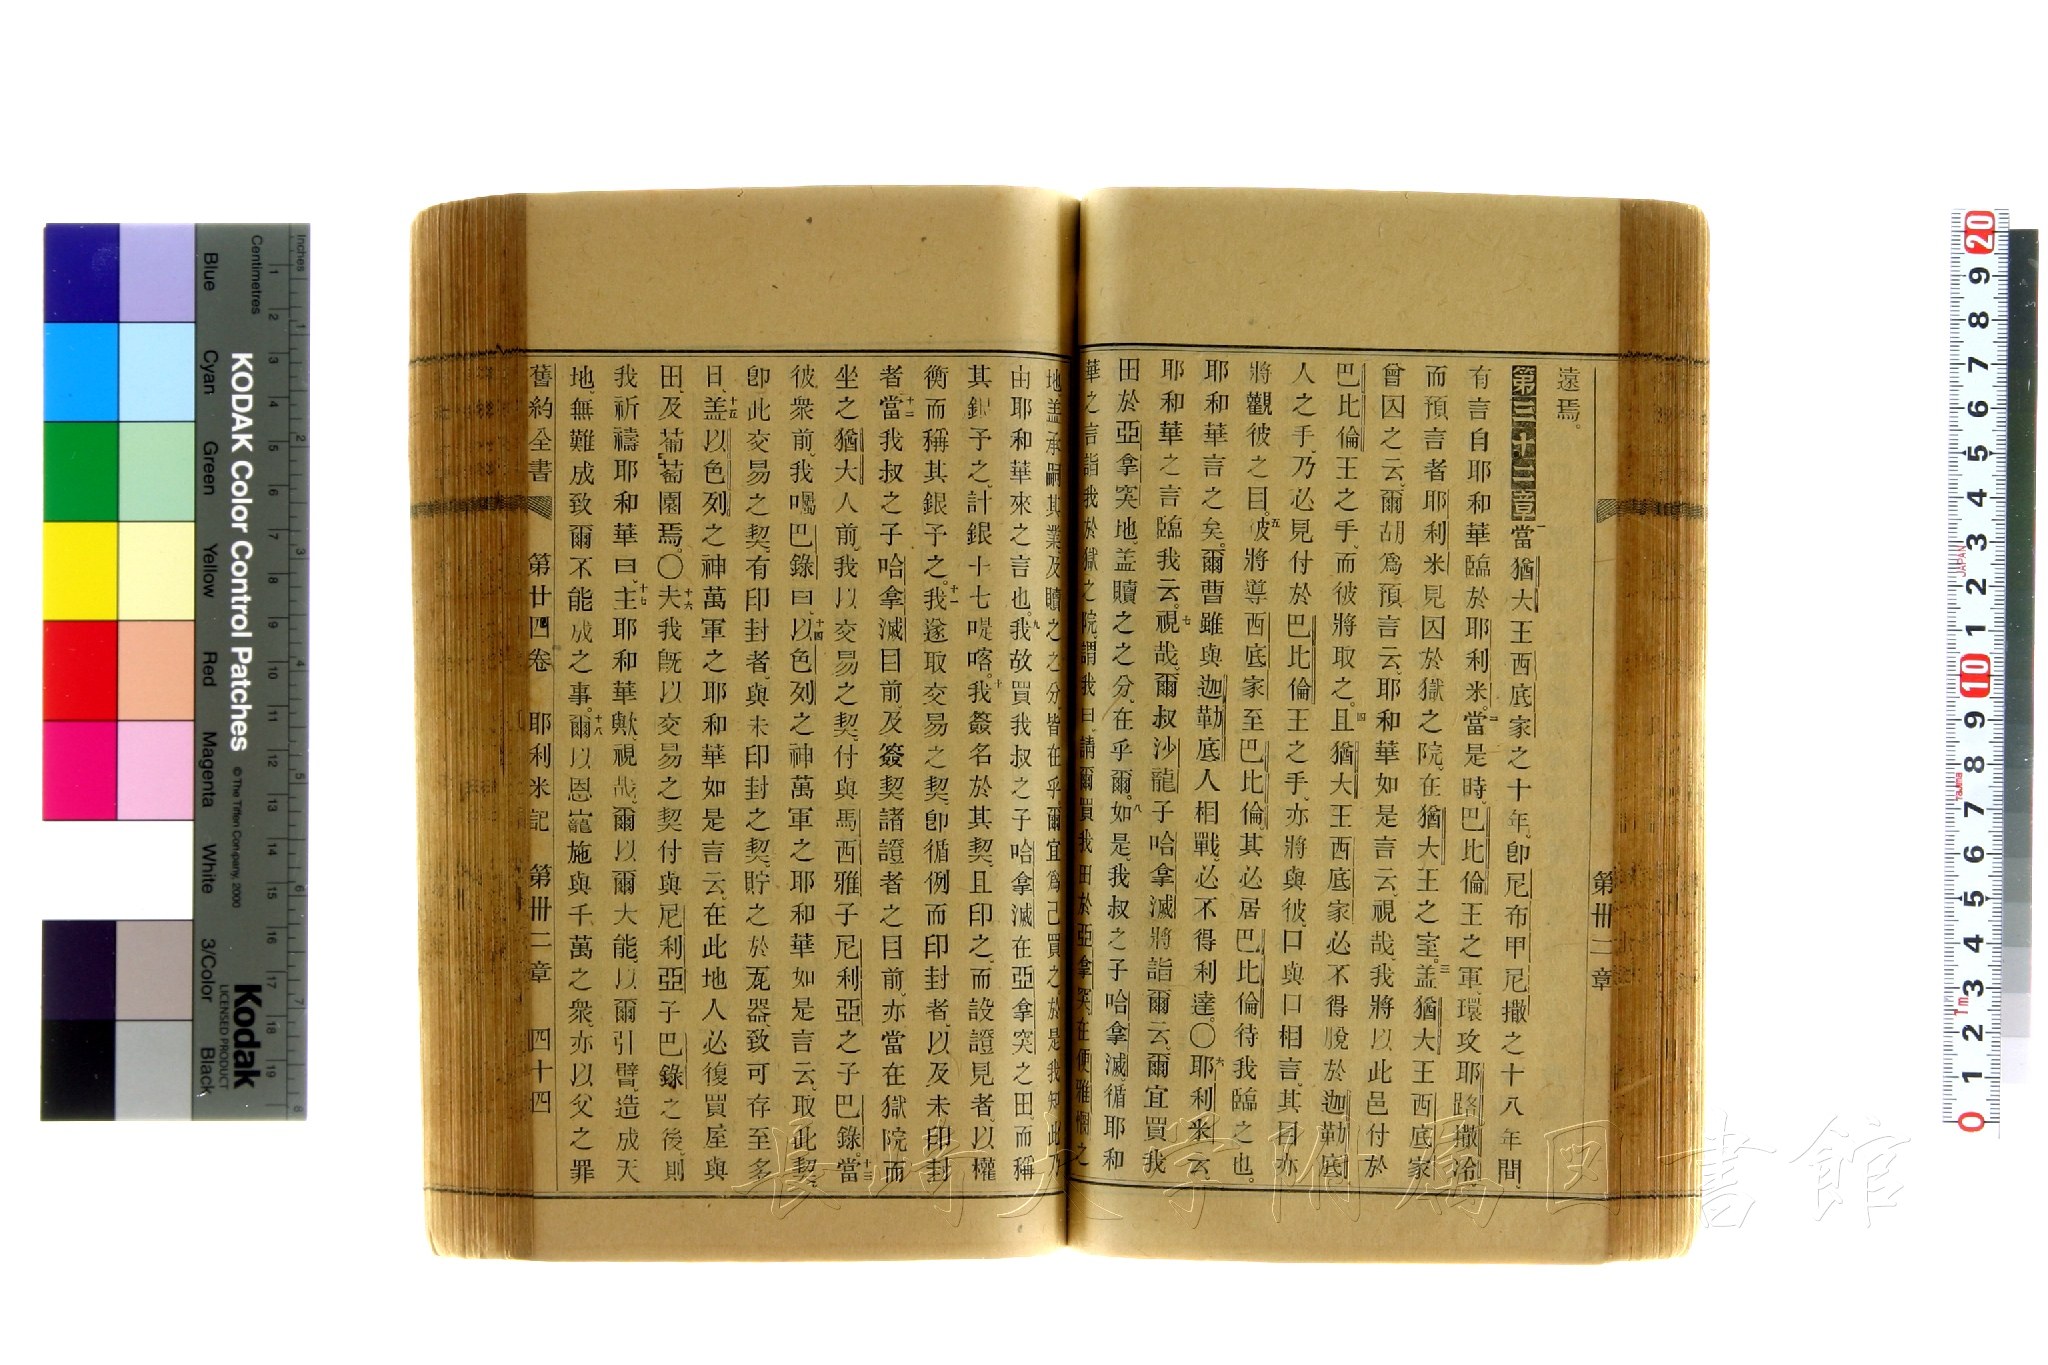 第卅二章
遠焉。
第三十二章一當猶大王西底家之十年、卽尼布甲尼撒之十八年間、
有言自耶和華臨於耶利米。二當是時、巴比倫王之軍、環攻耶路撒冷、
而預言者耶利米見囚於獄之院、在猶大王之室。三盖猶大王西底家
曾囚之云、爾胡爲預言云、耶和華如是言云、視哉、我將以此邑付於
巴比倫王之手、而彼將取之。四且猶大王西底家必不得脫於迦勒底
人之手、乃必見付於巴比倫王之手、亦將與彼口與口相言、其目亦
將觀彼之目。五彼將導西底家至巴比倫、其必居巴比倫待我臨之也。
耶和華言之矣。爾曹雖與迦勒底人相戰、必不得利達。〇六耶利米云、
耶和華之言臨我云。七視哉、爾叔沙龍子哈拿滅將詣爾云、爾宜買我
田於亞拿突地、盖贖之之分、在乎爾。八如是、我叔之子哈拿滅、循耶和
華之言、詣我於獄之院、謂我曰、請爾買我田於亞拿突在便雅憫之
地、盖承嗣其業、及贖之之分、皆在乎爾、宜爲己買之、於是我知此乃
由耶和華來之言也。九我故買我叔之子哈拿滅在亞拿突之田、而稱
其銀予之、計銀十七㖷喀。十我簽名於其契、且印之、而設證見者、以權
衡而稱其銀予之。十一我遂取交易之契、卽循例而印封者、以及未印封
者。十二當我叔之子哈拿滅目前、及簽契諸證者之目前、亦當在獄院而
坐之猶大人前、我以交易之契、付與馬西雅子尼利亞之子巴錄。十三當
彼衆前、我囑巴錄曰、十四以色列之神萬軍之耶和華如是言云、取此契、
卽此交易之契、有印封者、與未印封之契、貯之於瓦器、致可存至多
日、十五盖以色列之神萬軍之耶和華如是言云、在此地人必復買屋與
田、及葡萄園焉。〇十六夫我旣以交易之契付與尼利亞子巴錄之後、則
我祈禱耶和華曰、十七主耶和華歟、視哉、爾以爾大能、以爾引臂、造成天
地、無難成致爾不能成之事。十八爾以恩寵施與千萬之衆、亦以父之罪
舊約全書 第廿四卷 耶利米記 第卅二章 四十四
Inches
Centimetres
KODAK Color Control Patches
©The Tiffen Company, 2000
Kodak
LICENSED PRODUCT
Blue Cyan Green Yellow Red Magenta White 3/Color Black
長崎大学附属図書館